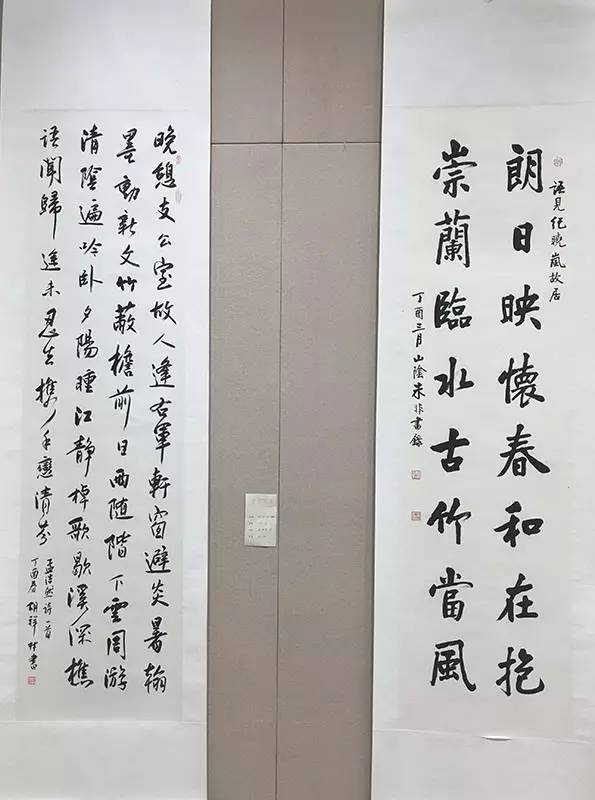 語見紀曉嵐故居
朗日映懷春和在抱
崇蘭臨水古竹當風
丁酉三月山陰朱非書錄
晚憩支公室故人逢右軍軒窗避炎暑翰
墨動新文竹蔽檐前日雨随階下雲周游
清陰遍吟卧夕陽曛江静棹歌歇溪深樵
語聞歸途未忍去攜手戀清芬
孟浩然詩一首
丁酉春胡祥竹書